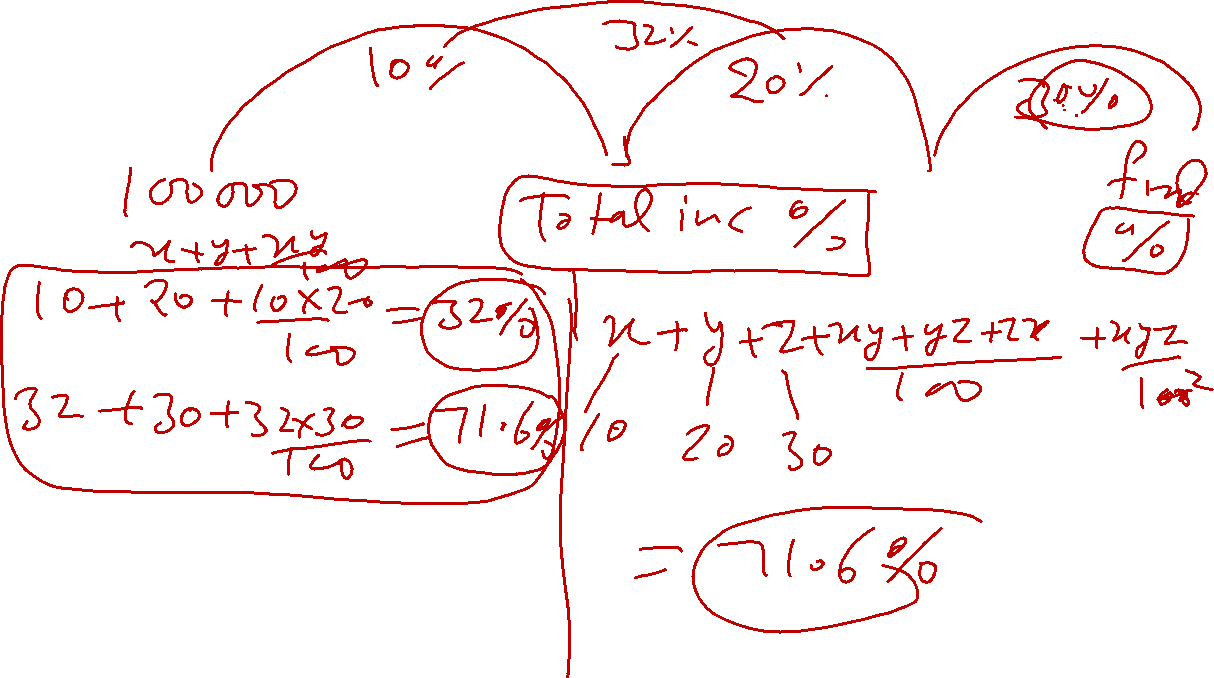 32%
10%
20%
30%
100000
Total inc %
find
%
x+y+xy/100
10+20+10×20/100=32%
32+30+32×30/100=71.6%
x+y+z+xy+yz+zx/100+xyz/100²
10 20 30
=71.6%